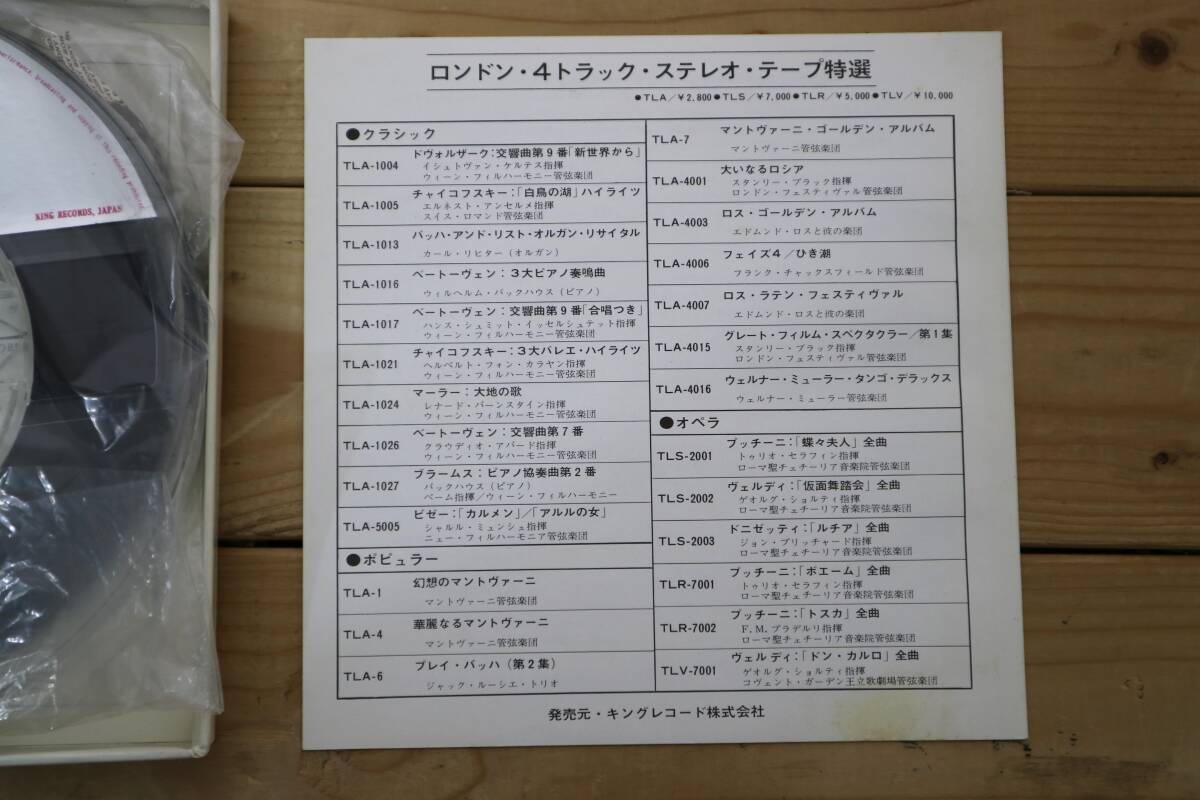 KING RECORDS, JAPAN
ロンドン・4トラック・ステレオ・テープ特選
●TLA/¥2,800●TLS/¥7,000●TLR/¥5,000●TLV/¥10,000
●クラシック
TLA-1004
ドヴォルザーク:交響曲第9番「新世界から」
イシュトヴァン・ケルテス指揮
ウィーン・フィルハーモニー管弦楽団
TLA-1005
チャイコフスキー:「白鳥の湖」ハイライツ
エルネスト・アンセルメ指揮
スイス・ロマンド管弦楽団
TLA-1013
バッハ・アンド・リスト・オルガン・リサイタル
カール・リヒター(オルガン)
TLA-1016
ベートーヴェン:3大ピアノ奏鳴曲
ウィルヘルム・バックハウス(ピアノ)
TLA-1017
ベートーヴェン:交響曲第9番「合唱つき」
ハンス・シュミット・イッセルシュテット指揮
ウィーン・フィルハーモニー管弦楽団
TLA-1021
チャイコフスキー:3大バレエ・ハイライツ
ヘルベルト・フォン・カラヤン指揮
ウィーン・フィルハーモニー管弦楽団
TLA-1024
マーラー:大地の歌
レナード・バーンスタイン指揮
ウィーン・フィルハーモニー管弦楽団
TLA-1026
ベートーヴェン:交響曲第7番
クラウディオ・アバード指揮
ウィーン・フィルハーモニー管弦楽団
TLA-1027
ブラームス:ピアノ協奏曲第2番
バックハウス(ピアノ)
ベーム指揮/ウィーン・フィルハーモニー
TLA-5005
ビゼー:「カルメン」/「アルルの女」
シャルル・ミュンシュ指揮
ニュー・フィルハーモニア管弦楽団
●ポピュラー
TLA-1
幻想のマントヴァーニ
マントヴァーニ管弦楽団
TLA-4
華麗なるマントヴァーニ
マントヴァーニ管弦楽団
TLA-6
プレイ・バッハ(第2集)
ジャック・ルーシエ・トリオ
TLA-7
マントヴァーニ・ゴールデン・アルバム
マントヴァーニ管弦楽団
TLA-4001
大いなるロシア
スタンリー・ブラック指揮
ロンドン・フェスティヴァル管弦楽団
TLA-4003
ロス・ゴールデン・アルバム
エドムンド・ロスと彼の楽団
TLA-4006
フェイズ4/ひき潮
フランク・チャックスフィールド管弦楽団
TLA-4007
ロス・ラテン・フェスティヴァル
エドムンド・ロスと彼の楽団
TLA-4015
グレート・フィルム・スペクタクラー/第1集
スタンリー・ブラック指揮
ロンドン・フェスティヴァル管弦楽団
TLA-4016
ウェルナー・ミューラー・タンゴ・デラックス
ウェルナー・ミューラー管弦楽団
●オペラ
TLS-2001
プッチーニ:「蝶々夫人」全曲
トゥリオ・セラフィン指揮
ローマ聖チェチーリア音楽院管弦楽団
TLS-2002
ヴェルディ:「仮面舞踏会」全曲
ゲオルグ・ショルティ指揮
ローマ聖チェチーリア音楽院管弦楽団
TLS-2003
ドニゼッティ:「ルチア」全曲
ジョン・プリッチャード指揮
ローマ聖チェチーリア音楽院管弦楽団
TLR-7001
プッチーニ:「ボエーム」全曲
トゥリオ・セラフィン指揮
ローマ聖チェチーリア音楽院管弦楽団
TLR-7002
プッチーニ:「トスカ」全曲
F.M.プラデルリ指揮
ローマ聖チェチーリア音楽院管弦楽団
TLV-7001
ヴェルディ:「ドン・カルロ」全曲
ゲオルグ・ショルティ指揮
コヴェント・ガーデン王立歌劇場管弦楽団
発売元・キングレコード株式会社